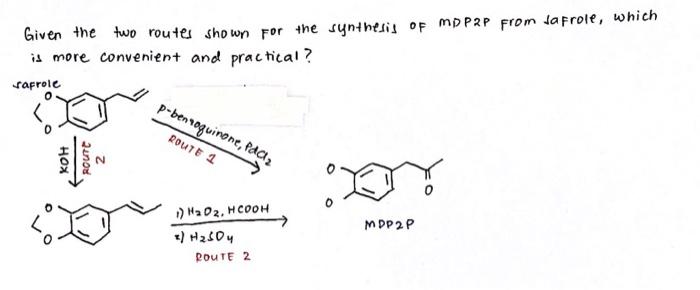 Given the two routes shown for the synthesis of MDP2P from safrole, which
is more convenient and practical?
safrole
p-benzoquinone, PdCl2
ROUTE 1
KOH
ROUTE 2
O
O
O
O
O
MDP2P
O
O
1) H2O2, HCOOH
2) H2SO4
ROUTE 2